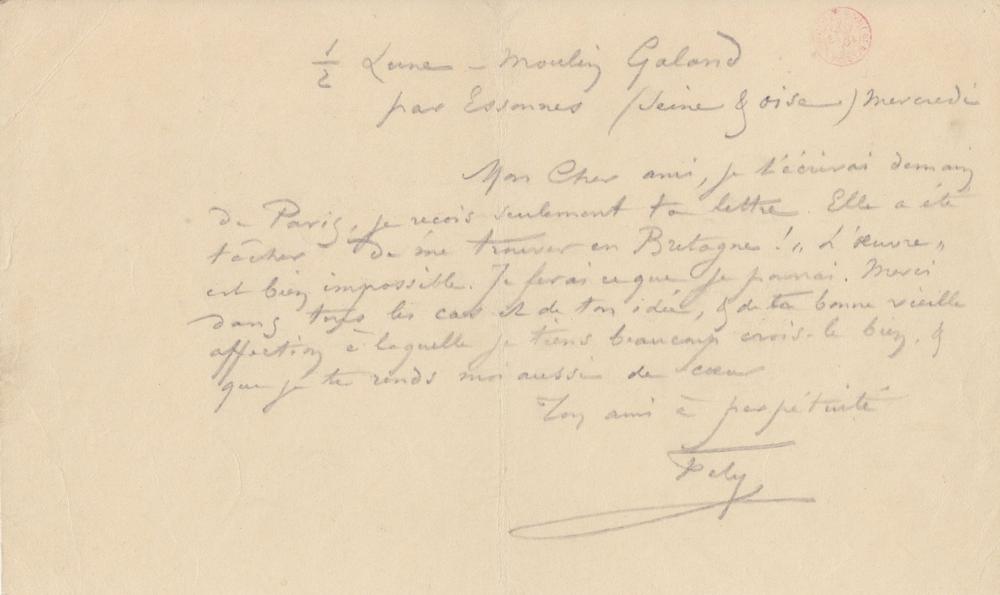 1/2 Lune – Moulin Galand
par Essonnes (Seine & oise) Mercredi
Mon Cher ami, je t'écrirai demain
de Paris, je reçois seulement ta lettre. Elle a été
tâcher de me trouver en Bretagne ! „ L'œuvre „
est bien impossible. Je ferai ce que je pourrai. Merci
dans tous les cas et de ton idée, & de ta bonne vieille
affection à laquelle je tiens beaucoup crois-le bien, &
que je te rends moi aussi de cœur
Ton ami à perpétuité
Fély